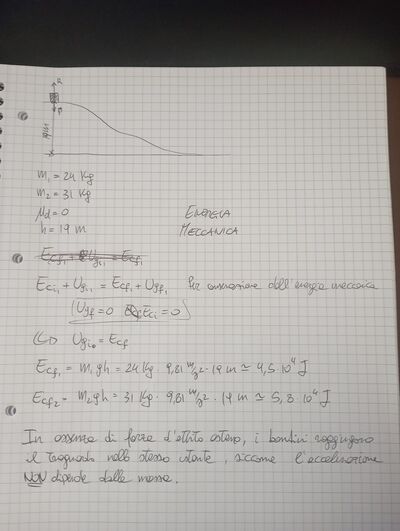 R
P
19m
m₁ = 24 Kg
m₂ = 31 Kg
μd = 0 ENERGIA
h = 19 m MECCANICA
Eci₁ + Ugi₁ = Ecf₁ + Ugf₁ Per conservazione dell'energia meccanica
(Ugf = 0 Eci = 0)
↪ Ugi = Ecf
Ecf₁ = m₁gh = 24 Kg · 9,81 m/s² · 19 m ≃ 4,5 · 10⁴ J
Ecf₂ = m₂gh = 31 Kg · 9,81 m/s² · 19 m ≃ 5,8 · 10⁴ J
In assenza di forze d'attrito esterno, i bambini raggiungono
il traguardo nello stesso istante, siccome l'accelerazione
NON dipende dalle masse.